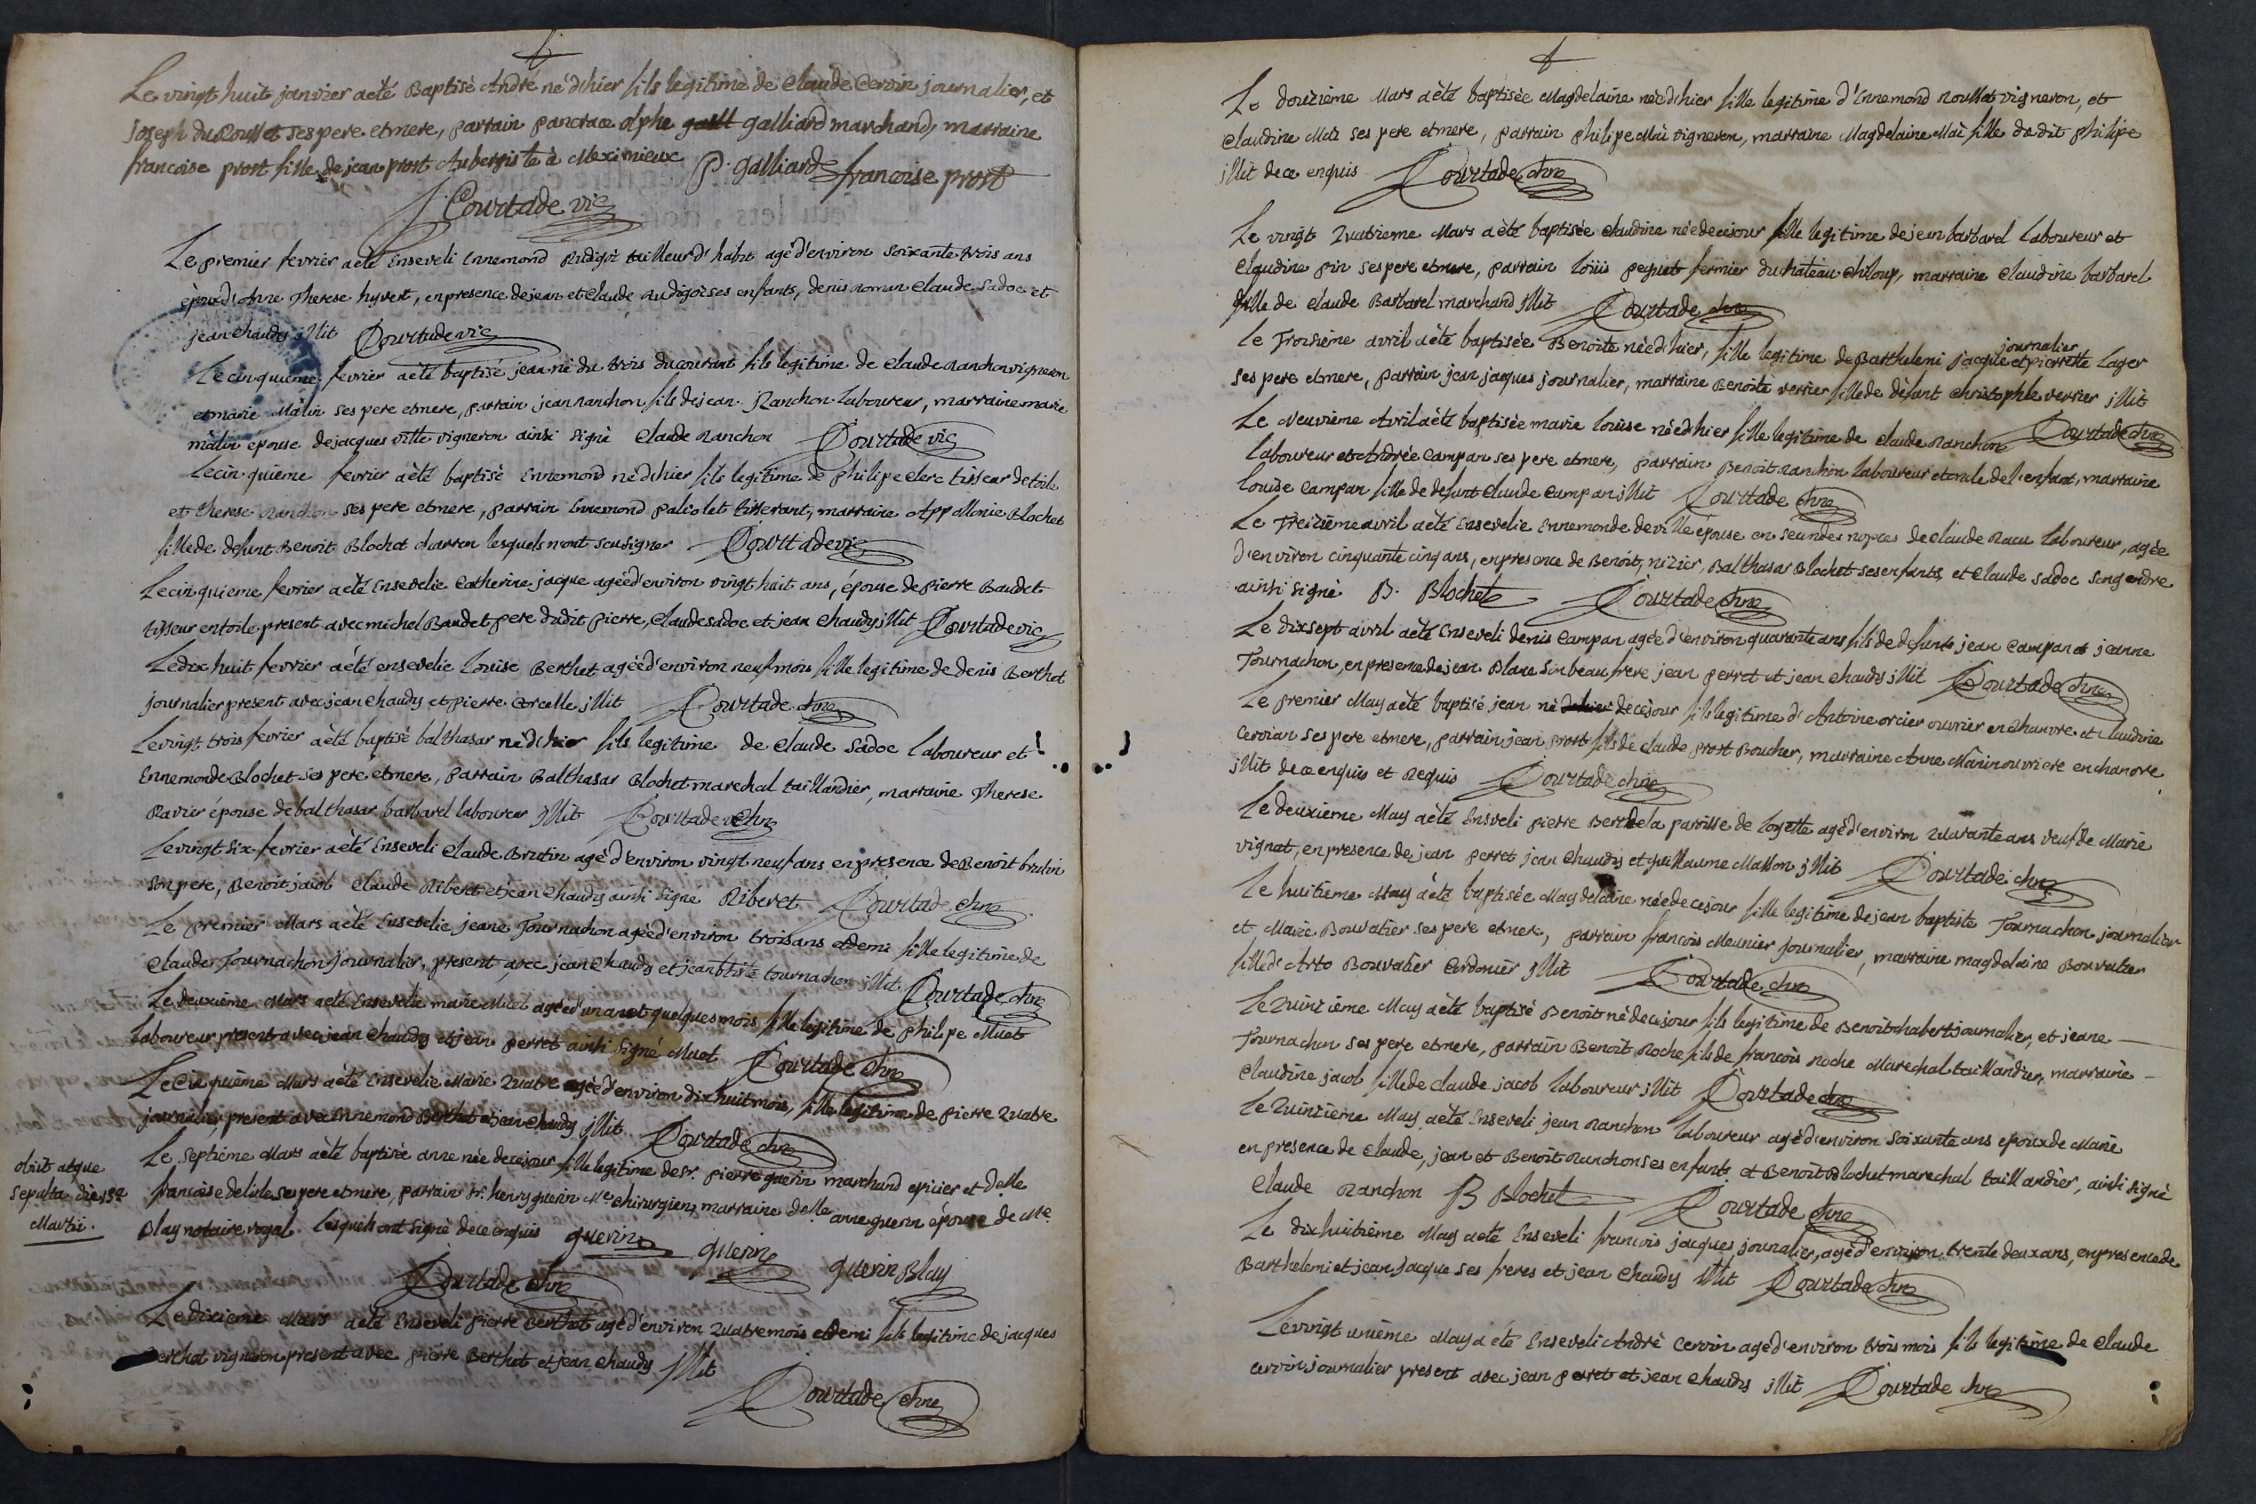 Le vingt huit janvier aeté Baptisé André né d'hier fils legitime de Claude Cervin journalier, et
Joseph du Roussot ses pere et mere, parrain pancrace olphe galliard marchand, marraine
francoise prost fille de jean prost Aubergiste à Meximieux P. galliard francoise prost
Courtade vic
Le premier fevrier aeté Enseveli Ennemond Rudigoi tailleur d'habit agé d'environ soixante trois ans
époux d'Anne Therese hyvert, en presence de jean et Claude Rudigoi ses enfants, denis roman Claude Sadoc et
jean Chaudy illit Courtade vic
Le cinquième fevrier aeté baptisé jean né du trois du courant fils legitime de Claude Ranchon vigneron
et marie Malin ses pere et mere, parrain jean ranchon fils de jean Ranchon Laboureur, marraine marie
màlin épouse de jacques ville vigneron ainsi signé Claude Ranchon Courtade vic
Le cinquième fevrier aèté baptisé Ennemond né d'hier fils legitime de philipe Clerc tisseur de toile
et therese Ranchon ses pere et mere, parrain Ennemond paliolet tisserant, marraine Appollonie Blochet
fille de defunt Benoit Blochet charron lesquels n'ont seu signer Courtade vic
Le cinquieme fevrier aeté Ensevelie Catherine jacque agée d'environ vingt huit ans, épouse de pierre Baudet
tisseur en toile present avec michel Baudet pere dudit pierre, Claude sadoc et jean Chaudy illit Courtade vic
Le dix huit fevrier aété ensevelie Louise Berthet agée d'environ neuf mois fille legitime de denis Berthet
journalier present avec jean Chaudy et pierre Corcelle illit Courtade chne
Le vingt trois fevrier aèté baptisé balthasar né d'hier fils legitime de Claude Sadoc laboureur et
Ennemonde Blochet ses pere et mere, parrain Balthasar Blochet marechal taillandier, marraine Therese
Ravier épouse de balthasar barbarel laboureur illit Courtade chne
Le vingt six fevrier aèté Enseveli Claude Brutin agé d'environ vingt neuf ans en presence de Benoit brulin
son pere, Benoit jacob Claude Ribert et jean Chaudy ainsi signé Riberet Courtade chne
Le premier Mars aèté Ensevelie jeane Tournachon agée d'environ trois ans et demi fille legitime de
Claude Tournachon journalier, present avec jean Chaudy et jean btiste tournachon illit Courtade chne
Le deuxième Mars aeté Ensevelie marie Muet agée d'un an et quelques mois fille legitime de philipe Muet
laboureur present avec jean Chaudy et jean perret ainsi signé Muet Courtade Chne
Le Cinquième Mars aèté Ensevelie Marie Quatre agée d'environ dix huit mois, fille legitime de pierre Quatre
journalier, present avec Ennemond Berthet et jean Chaudy illit Courtade chne
Le Septième Mars aèté baptisée anne née de ce jour fille legitime de Sr. pierre guerin marchand epicier et delle
francoise delisle ses pere et mere, parrain Sr. henry guerin Me. Chirurgien, marraine delle anne guerin épouse de Me.
Blay notaire royal. lesquels ont signé de ce enquis guerin guerin guerin Blay
Courtade Chne
obiit atque
sepulta die 13a
Martii.
Le dixieme Mars aèté Enseveli pierre Berthet agé d'environ Quatre mois et demi fils legitime de jacques
Berthet vigneron present avec pierre Berthet et jean Chaudy illit
Courtade Chne
Le douzième Mars aèté baptisée Magdelaine née d'hier fille legitime d'Ennemond roussot vigneron, et
Claudine Mai ses pere et mere, parrain philipe Mai vigneron, marraine Magdelaine Mai fille dudit philipe
illit de ce enquis Courtade chne
Le vingt Quatrieme Mars aèté baptisée claudine née de ce jour fille legitime de jean barbarel laboureur et
Claudine pin ses pere et mere, parrain loüis pequet fermier du château Chiloup, marraine Claudine barbarel
fille de Claude Barbarel marchand illit Courtade chne
Le Troisième avril aèté baptisée Benoite née d'hier, fille legitime de Barthelemi jacque journalier et pierrette Lager
ses pere et mere, parrain jean jacques journalier, marraine Benoite verrier fille de défunt Christophle verrier illit
Courtade chne
Le Neuvième Avril aèté baptisée marie loüise née d'hier fille legitime de Claude Ranchon
laboureur et Andrée Campan ses pere et mere, parrain Benoit ranchon laboureur et oncle de l'enfant, marraine
louise Campan fille de defunt Claude Campan illit Courtade chne
Le Treizième avril aèté Ensevelie Ennemonde deville épouse en secundes nopces de Claude Racu laboureur, agée
d'environ cinquante cinq ans, en presence de Benoit, nizier, Balthasar Blochet ses enfants, et Claude sadoc son gendre
ainsi signé B. Blochet Courtade chne
Le dix sept avril aèté Enseveli denis Campan agée d'environ quarante ans fils de defunts jean Campan et jeanne
Tournachon, en presence de jean Blanc son beau frere jean perret et jean Chaudy illit Courtade chne
Le premier May aèté baptisé jean né de ce jour fils legitime d'Antoine orcier ouvrier en chanvre et Claudine
Cervian ses pere et mere, parrain jean prost fils de Claude prost Boucher, marraine Anne Mànin ouvriere en chanvre
illit de ce enquis et Requis Courtade chne
Le deuxième May aèté Enseveli pierre Bert de la paroisse de loyette agé d'environ Quarante ans veuf de Marie
vignat, en presence de jean perret jean Chaudy et guillaume Masson illit Courtade chne
Le huitième May aèté baptisée Magdelaine née de ce jour fille legitime de jean baptiste Tournachon journalier
et Marie Bouvatier ses pere et mere, parrain francois Meunier journalier, marraine magdelaine Bouvatier
fille d'Arto Bouvatier Cordonier illit Courtade chne
Le Quinzième May aèté baptisé Benoit né de ce jour fils legitime de Benoit chabert journalier, et jeane
Tournachon ses pere et mere, parrain Benoit Roche fils de francois roche Marechal taillandier, marraine
Claudine jacob fille de Claude jacob laboureur illit Courtade chne
Le Quinzième May aèté Enseveli jean ranchon laboureur agé d'environ soixante ans epoux de Marie
en presence de Claude, jean et Benoit Ranchon ses enfants et Benoit Blochet marechal taillandier, ainsi signé
Claude ranchon B Blochet Courtade chne
Le dix huitième May aeté Enseveli francois jacques journalier, agé d'environ trente deux ans, en presence de
Barthelemi et jean jacque ses freres et jean Chaudy illit Courtade chne
Le vingt unième May a èté Enseveli André Cervin agé d'environ trois mois fils legitime de Claude
cervin journalier present avec jean perret et jean Chaudy illit Courtade chne